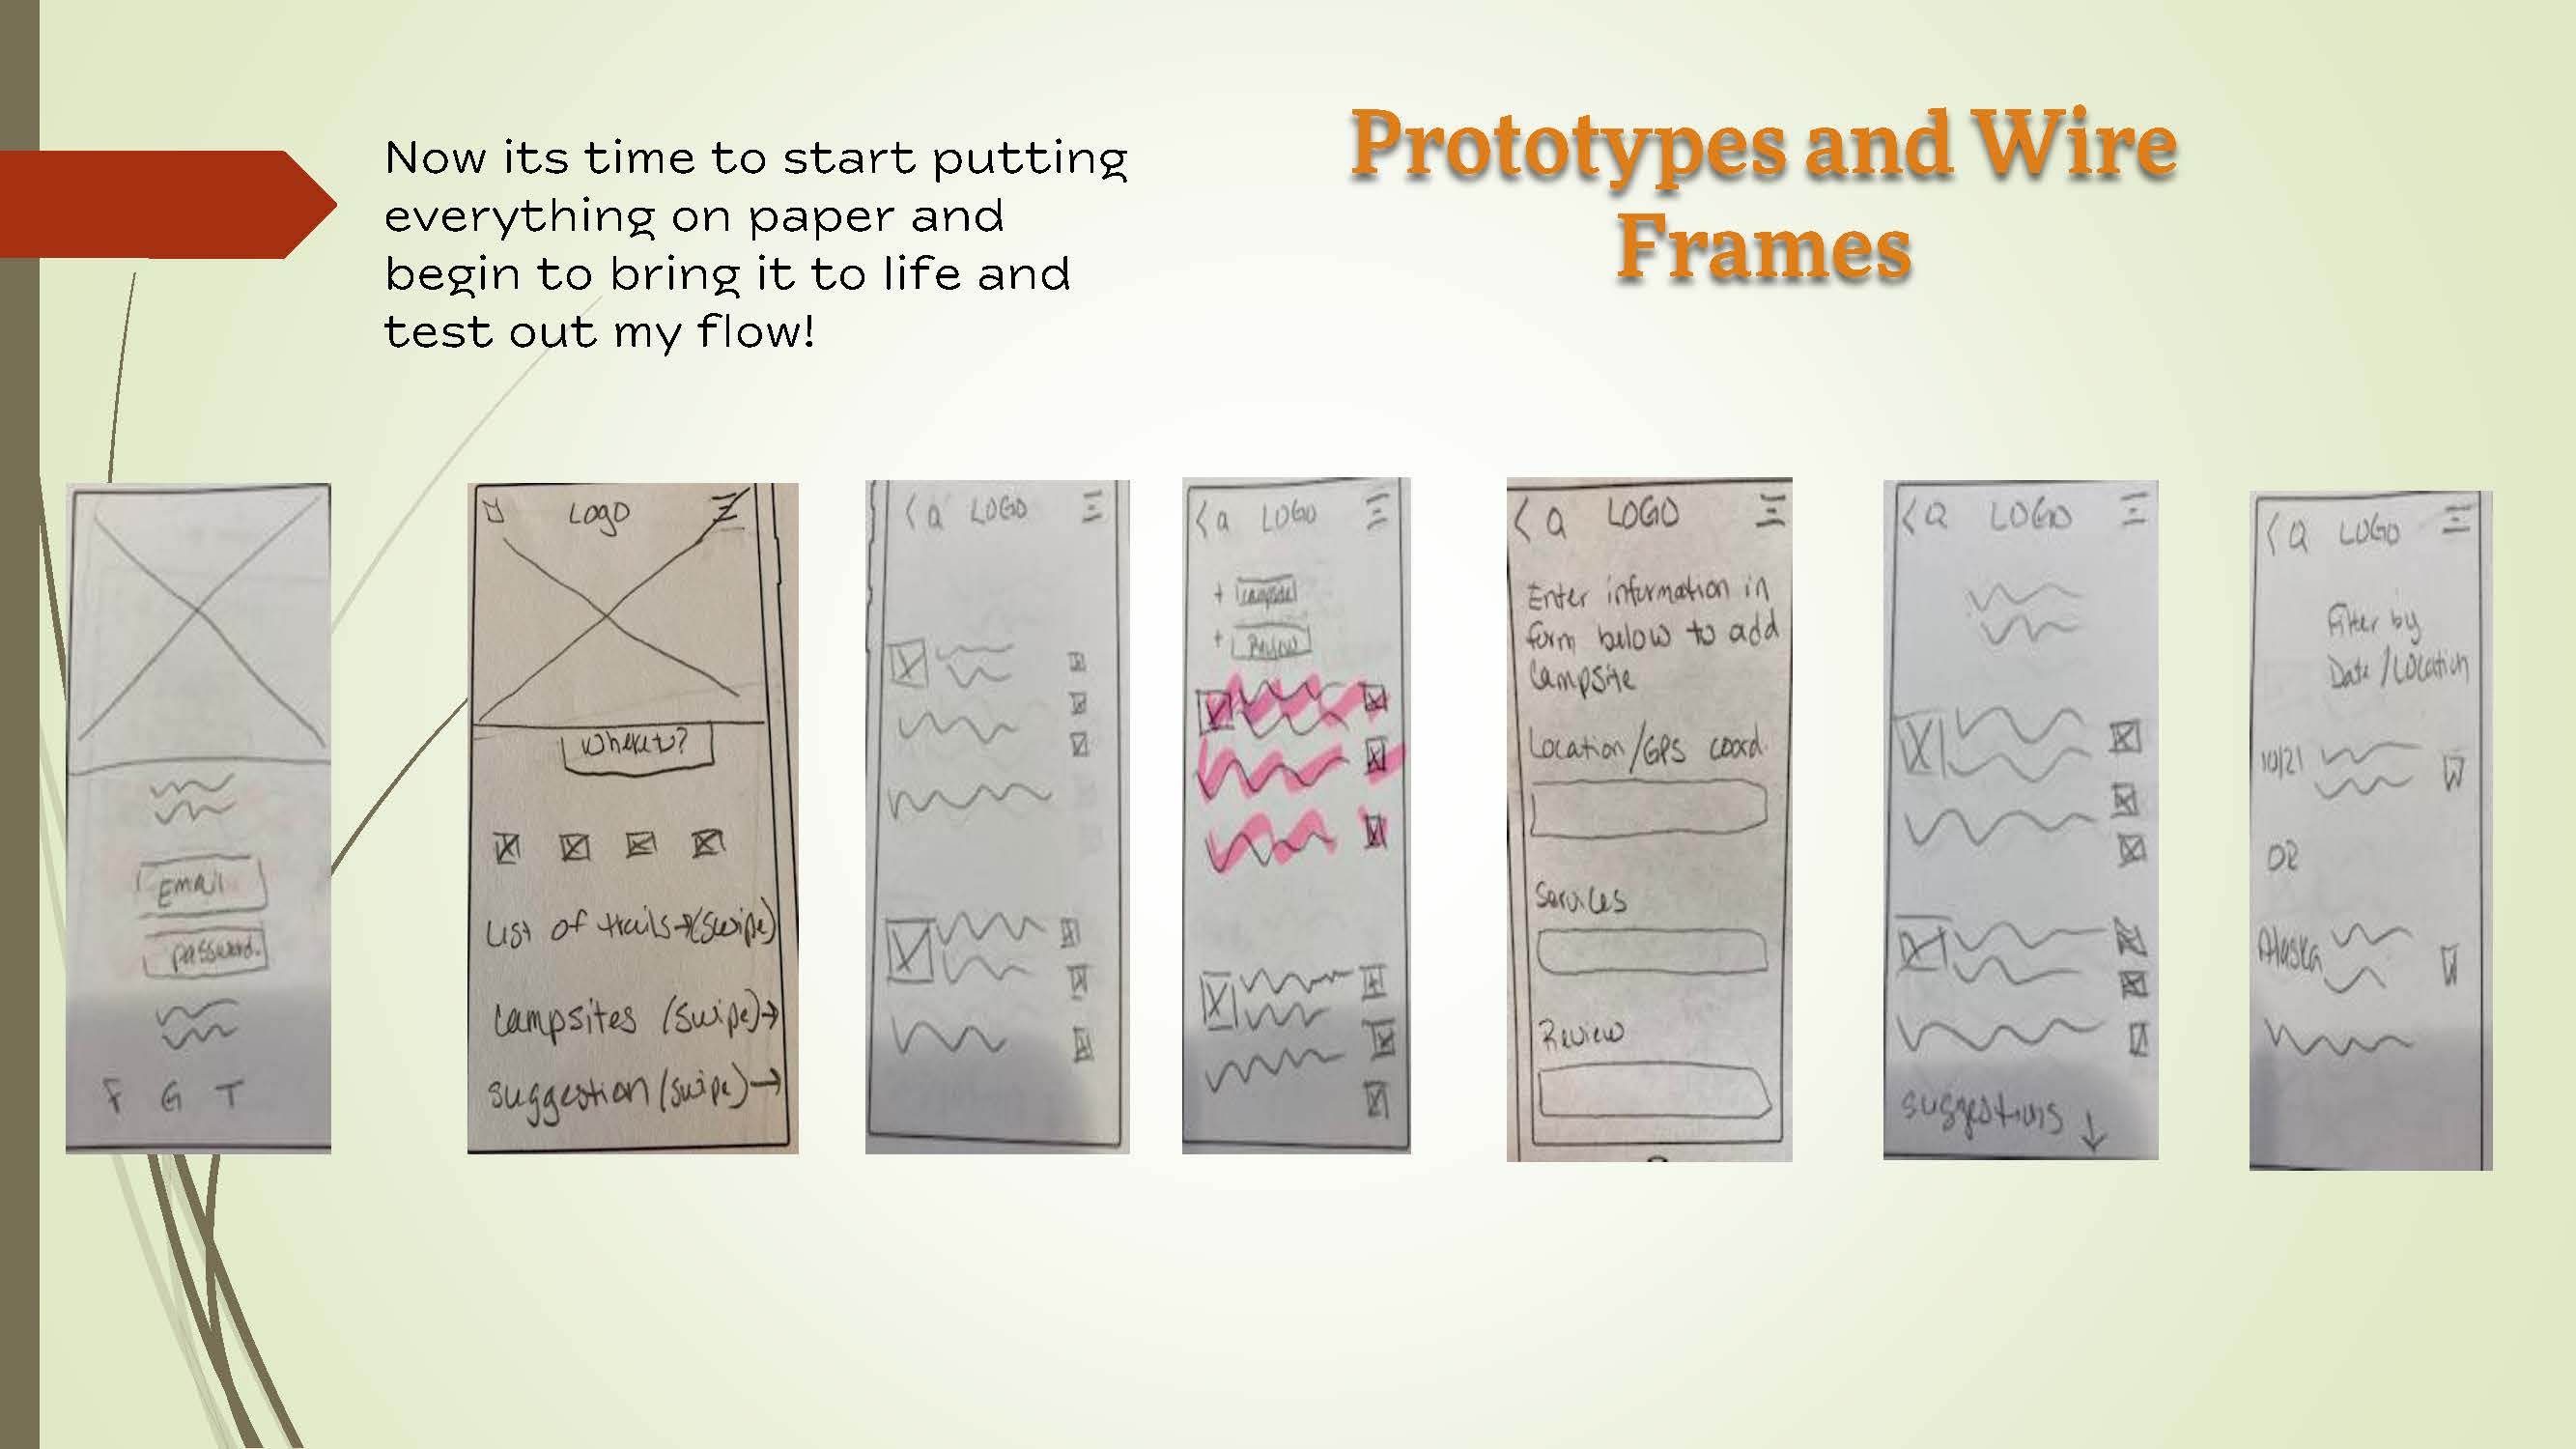 Now its time to start putting
everything on paper and
begin to bring it to life and
test out my flow!
Prototypes and Wire
Frames
EMAIL
password.
F G T
LOGO
Where to?
List of trails→(swipe)
campsites (swipe)→
suggestion (swipe)→
< Q LOGO
< Q LOGO
+ Campsite
+ Review
< Q LOGO
Enter information in
form below to add
Campsite
Location/GPS coord.
Services
Review
< Q LOGO
suggestions ↓
< Q LOGO
Filter by
Date/Location
10/21
OR
Alaska